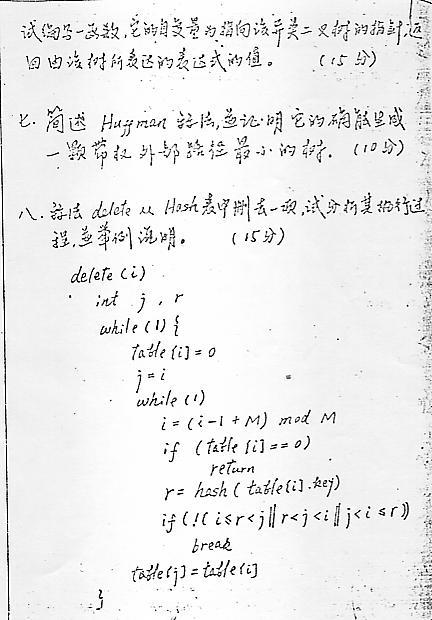 试编写一函数,它的自变量为指向该异类二叉树的指针,返
回由该树所表达的表达式的值。 (15分)
七. 简述 Huffman 算法,并证明它的确能生成
一颗带权外部路径最小的树. (10分)
八. 算法 delete 从 Hash 表中删去一项,试分析其执行过
程,并举例说明。 (15分)
delete (i)
int j , r
while (1) {
table [i] = 0
j = i
while (1)
i = (i-1+M) mod M
if (table [i] == 0)
return
r = hash ( table[i].key)
if (!( i≤r<j || r<j<i || j<i≤r))
break
table[j] = table[i]
}